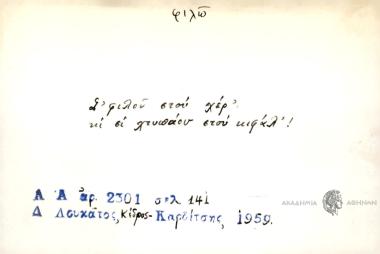 φιλῶ
Σ' φιλοῦ στού χέρ'
κί σί χτυπάου στού κιφάλ'!
Λ Α ἀρ. 2301 σελ 141
Δ Λουκᾶτος, Κέδρος-Καρδίτσης, 1959.
ΑΚΑΔΗΜΙΑ ΑΘΗΝΩΝ